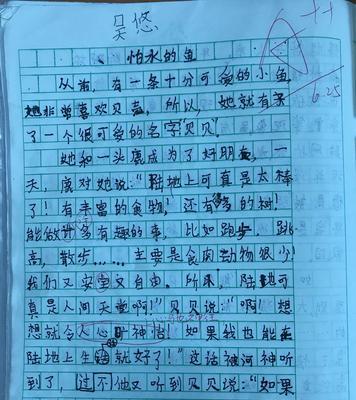 吴悠
怕水的鱼
从前，有一条十分可爱的小鱼
她非常喜欢贝壳，所以，她就有了
了一个很可爱的名字"贝贝"。
她和一头鹿成为了好朋友，一
天，鹿对她说："陆地上可真是太棒
了！有丰富的食物！还有多的树！
能做许多有趣的事，比如跑步、跳
高，散步……主要是食肉动物很少！
我们又安全又自由。所以，陆地可
真是人间天堂啊！"贝贝说："啊！想
想就令人心旷神怡！如果我也能在
陆地上生活就好了！"这话被河神听
到了，过不他又听到贝贝说："如果
A++
6.25